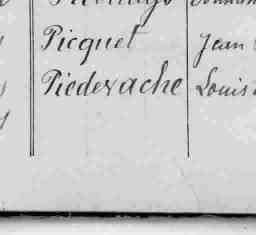 Picquet Jean
Piedevache Louis